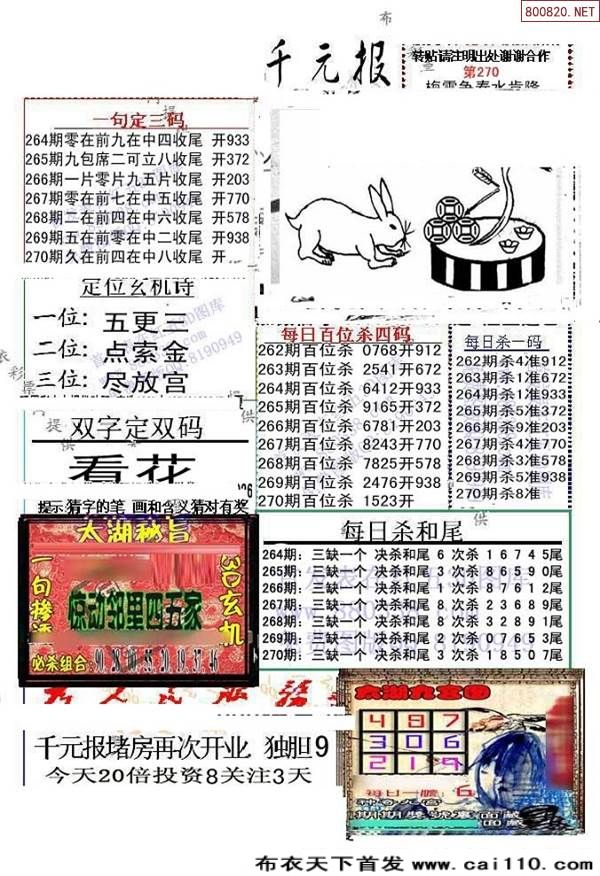 800820.NET
千元报
转贴请注明出处谢谢合作
第270
梅雪争春水肯降
一句定三码
264期零在前九在中四收尾 开933
265期九包席二可立八收尾 开372
266期一片零片九五片收尾 开203
267期零在前七在中五收尾 开770
268期二在前四在中六收尾 开578
269期五在前零在中二收尾 开938
270期久在前四在中八收尾 开
定位玄机诗
一位: 五更三
二位: 点索金
三位: 尽放宫
每日百位杀四码
262期百位杀 0768开912
263期百位杀 2541开672
264期百位杀 6412开933
265期百位杀 9165开372
266期百位杀 6781开203
267期百位杀 8243开770
268期百位杀 7825开578
269期百位杀 2476开938
270期百位杀 1523开
每日杀一码
262期杀4准912
263期杀1准672
264期杀1准933
265期杀5准372
266期杀9准203
267期杀4准770
268期杀3准578
269期杀5准938
270期杀8准
双字定双码
看花
提示:猜字的笔 画和含义猜对有奖
太湖秘旨
一句
3D玄机
惊动邻里四五家
必杀组合:
每日杀和尾
264期: 三缺一个 决杀和尾 6 次杀 1 6 7 4 5尾
265期: 三缺一个 决杀和尾 3 次杀 8 6 5 9 0尾
266期: 三缺一个 决杀和尾 1 次杀 8 7 6 1 2尾
267期: 三缺一个 决杀和尾 8 次杀 2 3 6 8 9尾
268期: 三缺一个 决杀和尾 8 次杀 3 2 4 8 7尾
269期: 三缺一个 决杀和尾 2 次杀 0 7 6 5 3尾
270期: 三缺一个 决杀和尾 3 次杀 1 8 5 0 7尾
千元报堵房再次开业 独胆9
今天20倍投资8关注3天
太湖九宫图
4 9 7
3 0 6
2 1 9
每日一胆: 6
布衣天下首发 www.cai110.com